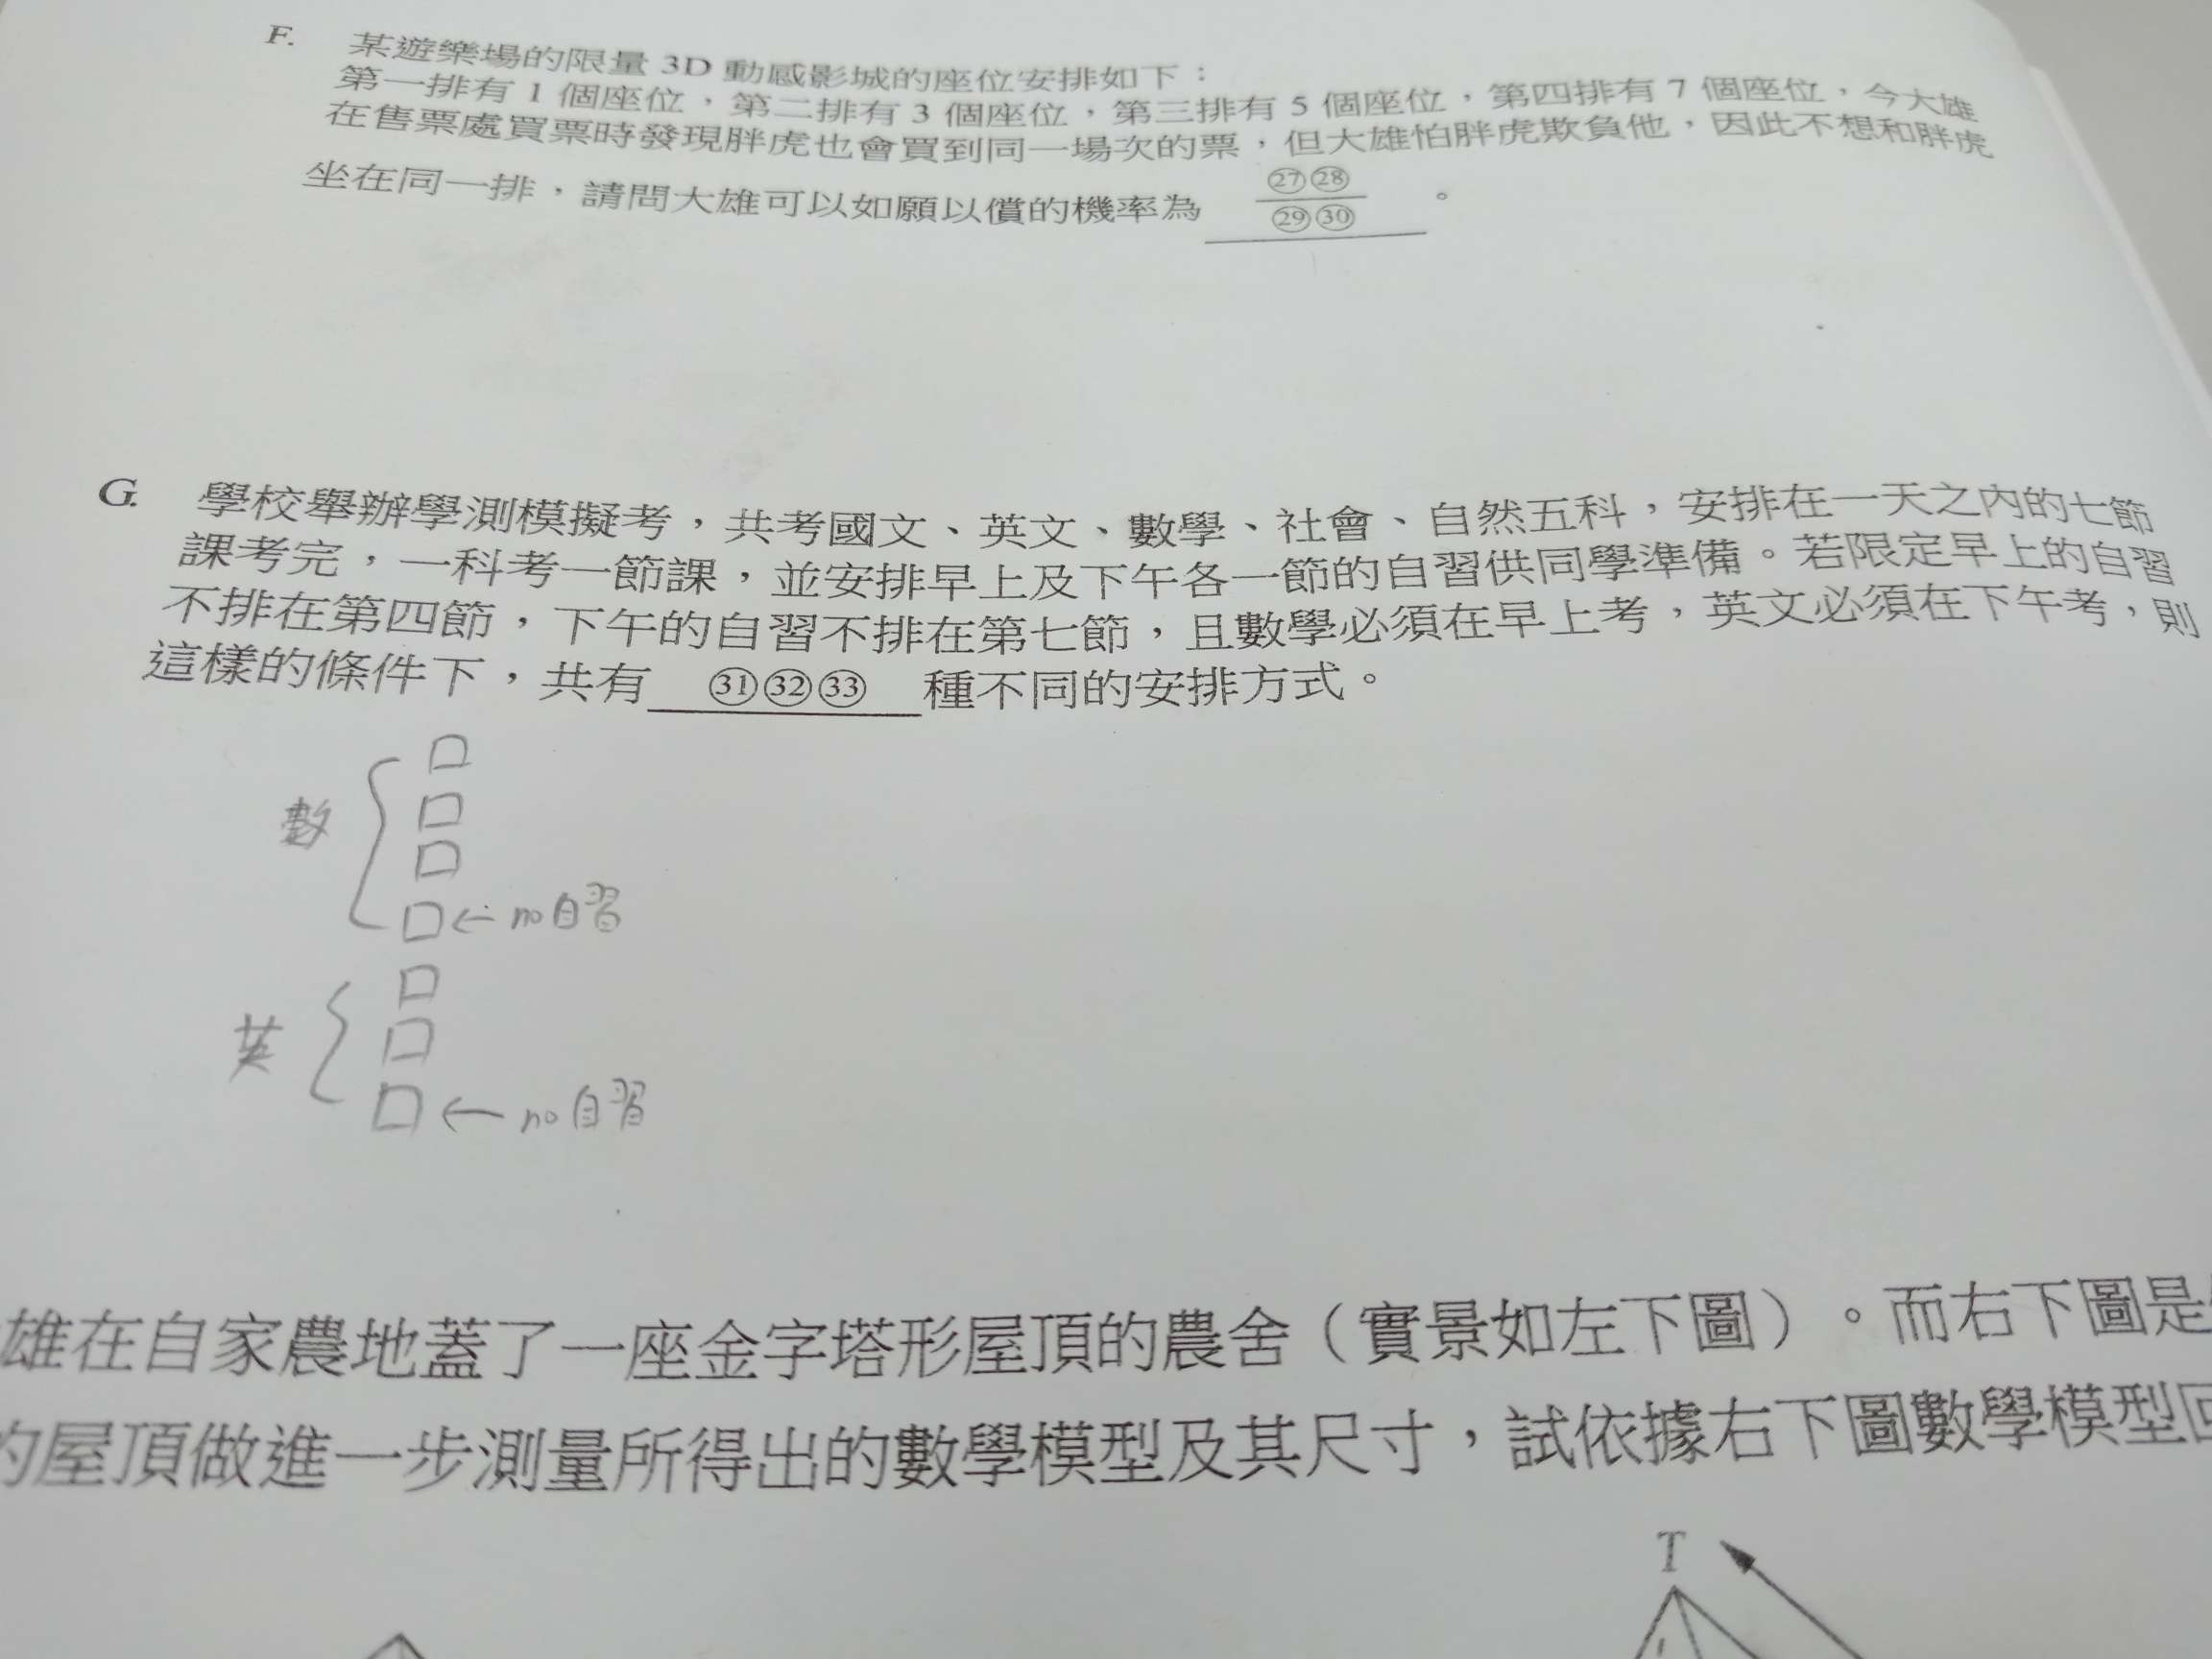 F. 某遊樂場的限量 3D 動感影城的座位安排如下：
第一排有 1 個座位，第二排有 3 個座位，第三排有 5 個座位，第四排有 7 個座位，今大雄
在售票處買票時發現胖虎也會買到同一場次的票，但大雄怕胖虎欺負他，因此不想和胖虎
坐在同一排，請問大雄可以如願以償的機率為 ㉗㉘ 。
㉙㉚
G. 學校舉辦學測模擬考，共考國文、英文、數學、社會、自然五科，安排在一天之內的七節
課考完，一科考一節課，並安排早上及下午各一節的自習供同學準備。若限定早上的自習
不排在第四節，下午的自習不排在第七節，且數學必須在早上考，英文必須在下午考，則
這樣的條件下，共有 ㉛㉜㉝ 種不同的安排方式。
數
← no 自習
英
← no 自習
雄在自家農地蓋了一座金字塔形屋頂的農舍（實景如左下圖）。而右下圖是
的屋頂做進一步測量所得出的數學模型及其尺寸，試依據右下圖數學模型回
T